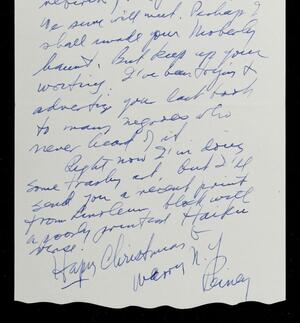 We sure will meet. Perhaps I
shall invade your Moberly
haunt. But keep up your
writing. I've been trying to
advertize you last book
to many negroes who
never heard of it.
Right now I'm doing
some trashy art, but I'll
send you a recent print
from linoleum block with
a poorly printed Haiku
verse.
Happy Christmas &
Merry N. Y.